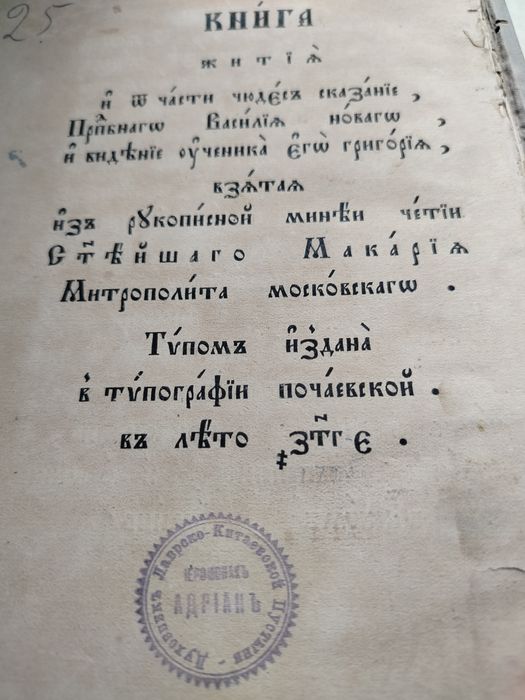 25
КНИ́ГА
житїѧ̀
и҆ ѿ ча́сти чюде́съ сказа́нїе ,
Прпⷣбнагѡ Васи́лїѧ но́вагѡ ,
и҆ видѣ́нїе ᲂу҆ченика̀ є҆гѡ̀ григо́рїѧ ,
взѧ́таѧ
и҆зъ рꙋкопи́сной мине́и че́тїи
Ст҃ѣ́йшаго Мака́рїѧ
Митрополи́та моско́вскагѡ .
Тѵ́помъ и҆́здана̀
в̾ тѵ́погра́фїи поча́евской .
въ лѣ́то ҂зт҃г є .
Духовникъ Лаврско-Китаевской Пустыни
ІЕРОМОНАХЪ
АДРІАНЪ